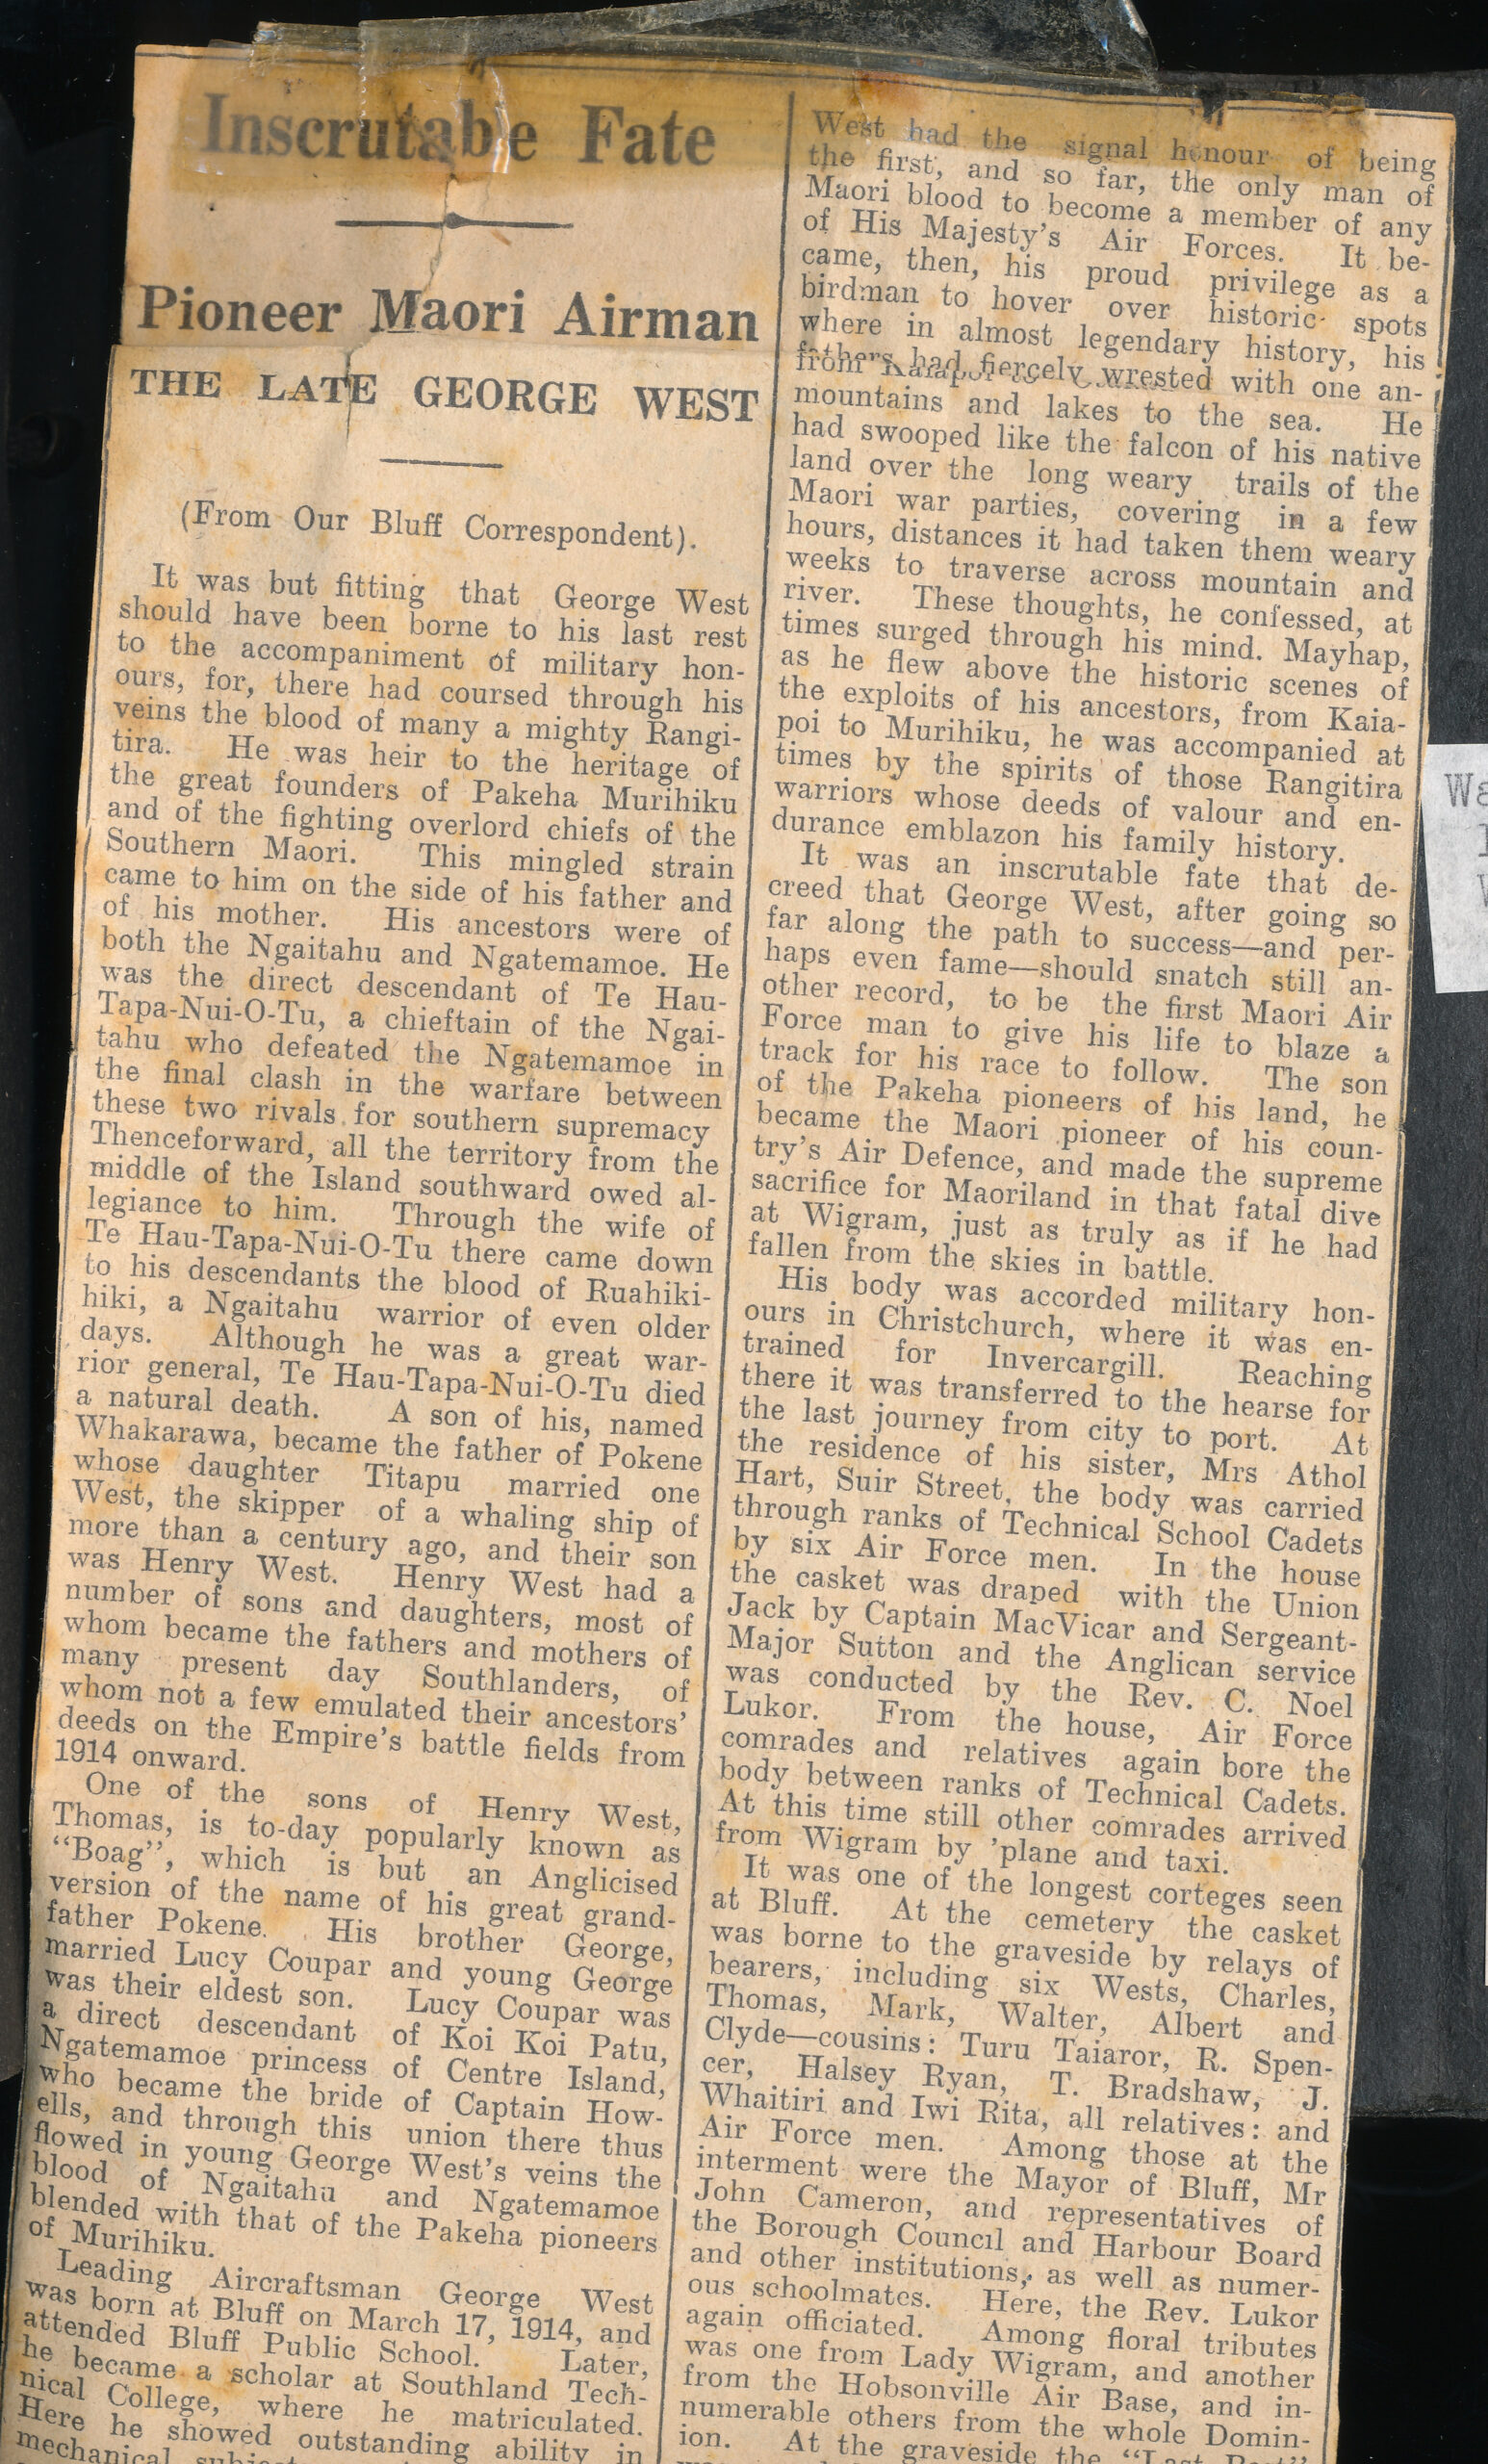 Inscrutable Fate
Pioneer Maori Airman
THE LATE GEORGE WEST
(From Our Bluff Correspondent).
It was but fitting that George West
should have been borne to his last rest
to the accompaniment of military hon-
ours, for, there had coursed through his
veins the blood of many a mighty Rangi-
tira. He was heir to the heritage of
the great founders of Pakeha Murihiku
and of the fighting overlord chiefs of the
Southern Maori. This mingled strain
came to him on the side of his father and
of his mother. His ancestors were of
both the Ngaitahu and Ngatemamoe. He
was the direct descendant of Te Hau-
Tapa-Nui-O-Tu, a chieftain of the Ngai-
tahu who defeated the Ngatemamoe in
the final clash in the warfare between
these two rivals for southern supremacy
Thenceforward, all the territory from the
middle of the Island southward owed al-
legiance to him. Through the wife of
Te Hau-Tapa-Nui-O-Tu there came down
to his descendants the blood of Ruahiki-
hiki, a Ngaitahu warrior of even older
days. Although he was a great war-
rior general, Te Hau-Tapa-Nui-O-Tu died
a natural death. A son of his, named
Whakarawa, became the father of Pokene
whose daughter Titapu married one
West, the skipper of a whaling ship of
more than a century ago, and their son
was Henry West. Henry West had a
number of sons and daughters, most of
whom became the fathers and mothers of
many present day Southlanders, of
whom not a few emulated their ancestors'
deeds on the Empire's battle fields from
1914 onward.
One of the sons of Henry West,
Thomas, is to-day popularly known as
"Boag", which is but an Anglicised
version of the name of his great grand-
father Pokene. His brother George,
married Lucy Coupar and young George
was their eldest son. Lucy Coupar was
a direct descendant of Koi Koi Patu,
Ngatemamoe princess of Centre Island,
who became the bride of Captain How-
ells, and through this union there thus
flowed in young George West's veins the
blood of Ngaitahu and Ngatemamoe
blended with that of the Pakeha pioneers
of Murihiku.
Leading Aircraftsman George West
was born at Bluff on March 17, 1914, and
attended Bluff Public School. Later,
he became a scholar at Southland Tech-
nical College, where he matriculated.
Here he showed outstanding ability in
mechanical
West had the signal honour of being
the first, and so far, the only man of
Maori blood to become a member of any
of His Majesty's Air Forces. It be-
came, then, his proud privilege as a
birdman to hover over historic spots
where in almost legendary history, his
fathers had fiercely wrested with one an-
mountains and lakes to the sea. He
had swooped like the falcon of his native
land over the long weary trails of the
Maori war parties, covering in a few
hours, distances it had taken them weary
weeks to traverse across mountain and
river. These thoughts, he confessed, at
times surged through his mind. Mayhap,
as he flew above the historic scenes of
the exploits of his ancestors, from Kaia-
poi to Murihiku, he was accompanied at
times by the spirits of those Rangitira
warriors whose deeds of valour and en-
durance emblazon his family history.
It was an inscrutable fate that de-
creed that George West, after going so
far along the path to success—and per-
haps even fame—should snatch still an-
other record, to be the first Maori Air
Force man to give his life to blaze a
track for his race to follow. The son
of the Pakeha pioneers of his land, he
became the Maori pioneer of his coun-
try's Air Defence, and made the supreme
sacrifice for Maoriland in that fatal dive
at Wigram, just as truly as if he had
fallen from the skies in battle.
His body was accorded military hon-
ours in Christchurch, where it was en-
trained for Invercargill. Reaching
there it was transferred to the hearse for
the last journey from city to port. At
the residence of his sister, Mrs Athol
Hart, Suir Street, the body was carried
through ranks of Technical School Cadets
by six Air Force men. In the house
the casket was draped with the Union
Jack by Captain MacVicar and Sergeant-
Major Sutton and the Anglican service
was conducted by the Rev. C. Noel
Lukor. From the house, Air Force
comrades and relatives again bore the
body between ranks of Technical Cadets.
At this time still other comrades arrived
from Wigram by 'plane and taxi.
It was one of the longest corteges seen
at Bluff. At the cemetery the casket
was borne to the graveside by relays of
bearers, including six Wests, Charles,
Thomas, Mark, Walter, Albert and
Clyde—cousins: Turu Taiaror, R. Spen-
cer, Halsey Ryan, T. Bradshaw, J.
Whaitiri and Iwi Rita, all relatives: and
Air Force men. Among those at the
interment were the Mayor of Bluff, Mr
John Cameron, and representatives of
the Borough Council and Harbour Board
and other institutions, as well as numer-
ous schoolmates. Here, the Rev. Lukor
again officiated. Among floral tributes
was one from Lady Wigram, and another
from the Hobsonville Air Base, and in-
numerable others from the whole Domin-
ion. At the graveside the "Last Post"